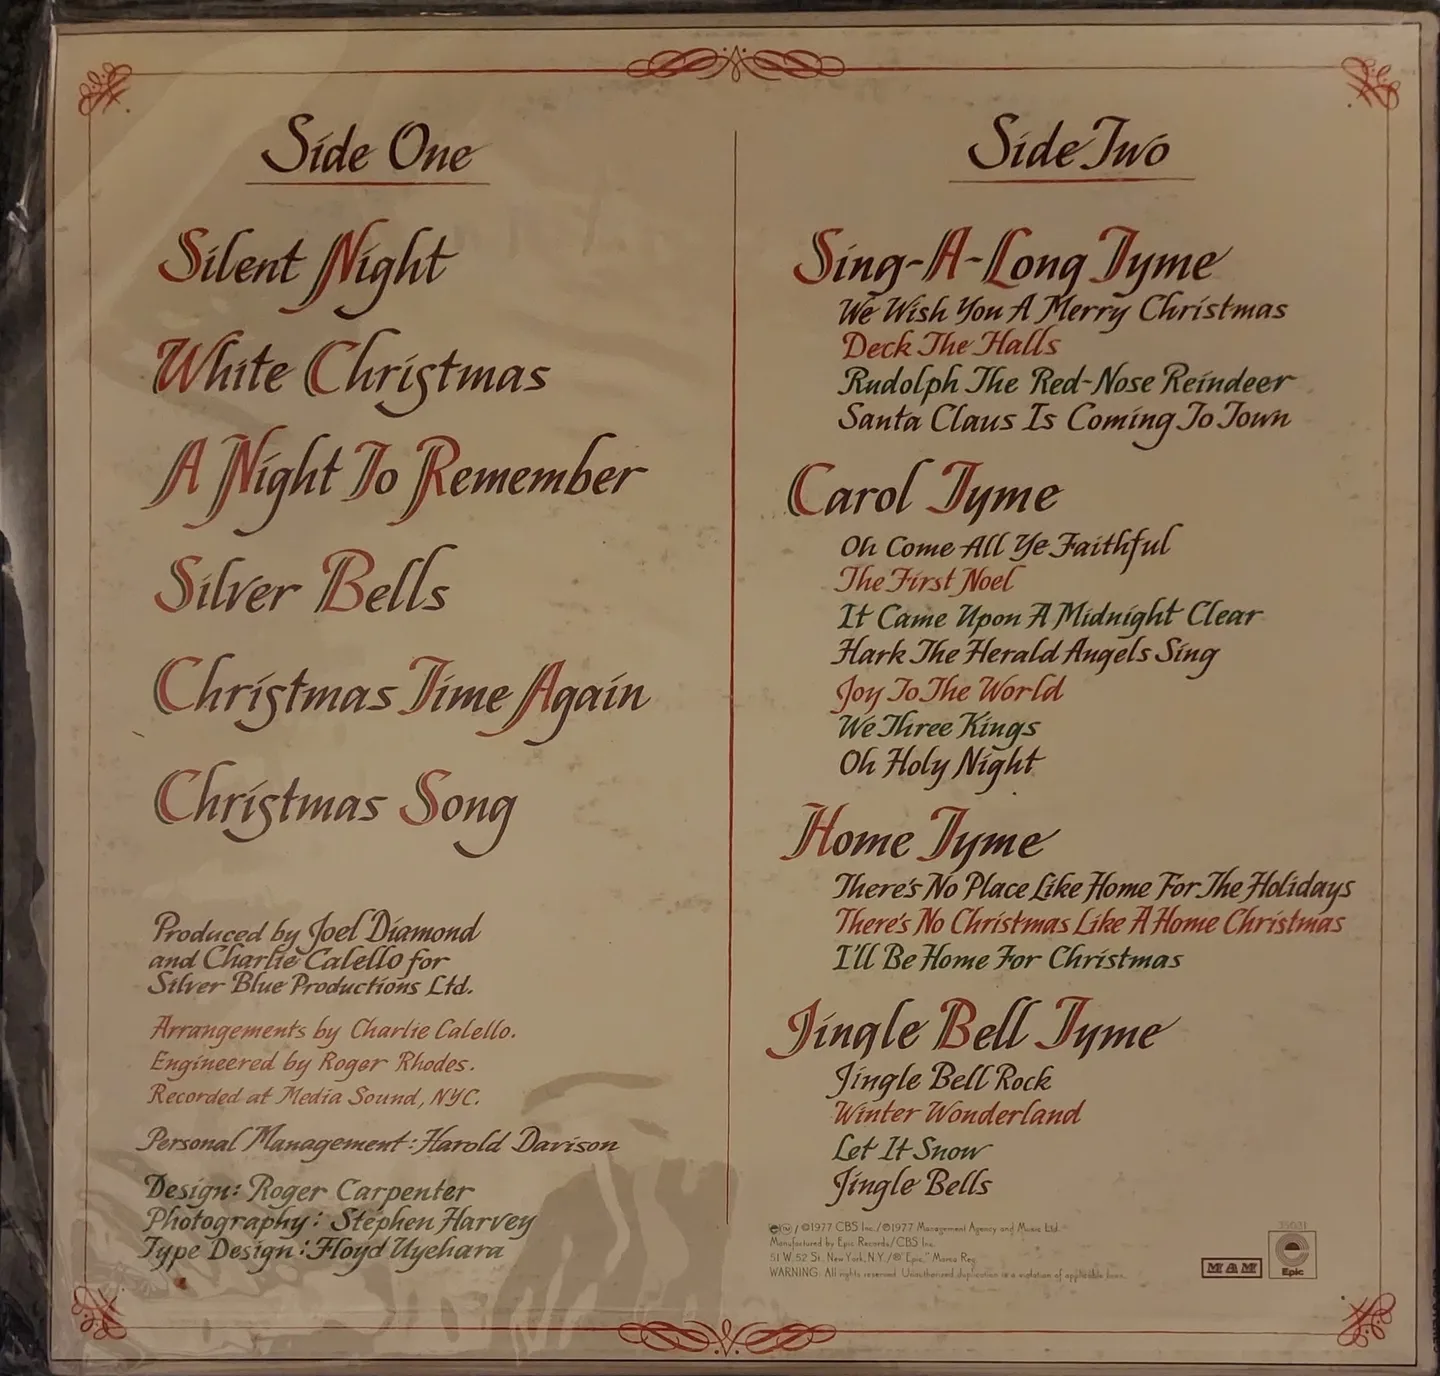 Side One
Silent Night
White Christmas
A Night To Remember
Silver Bells
Christmas Time Again
Christmas Song
Produced by Joel Diamond
and Charlie Calello for
Silver Blue Productions Ltd.
Arrangements by Charlie Calello.
Engineered by Roger Rhodes.
Recorded at Media Sound, NYC.
Personal Management: Harold Davison
Design: Roger Carpenter
Photography: Stephen Harvey
Type Design: Floyd Uyehara
Side Two
Sing-A-Long Tyme
We Wish You A Merry Christmas
Deck The Halls
Rudolph The Red-Nose Reindeer
Santa Claus Is Coming To Town
Carol Tyme
Oh Come All Ye Faithful
The First Noel
It Came Upon A Midnight Clear
Hark The Herald Angels Sing
Joy To The World
We Three Kings
Oh Holy Night
Home Tyme
There's No Place Like Home For The Holidays
There's No Christmas Like A Home Christmas
I'll Be Home For Christmas
Jingle Bell Tyme
Jingle Bell Rock
Winter Wonderland
Let It Snow
Jingle Bells
/ ©1977 CBS Inc./℗1977 Management Agency and Music Ltd.
Manufactured by Epic Records/CBS Inc.
51 W. 52 St. New York, N.Y./® "Epic," Marca Reg.
WARNING: All rights reserved. Unauthorized duplication is a violation of applicable laws.
MAM
Epic